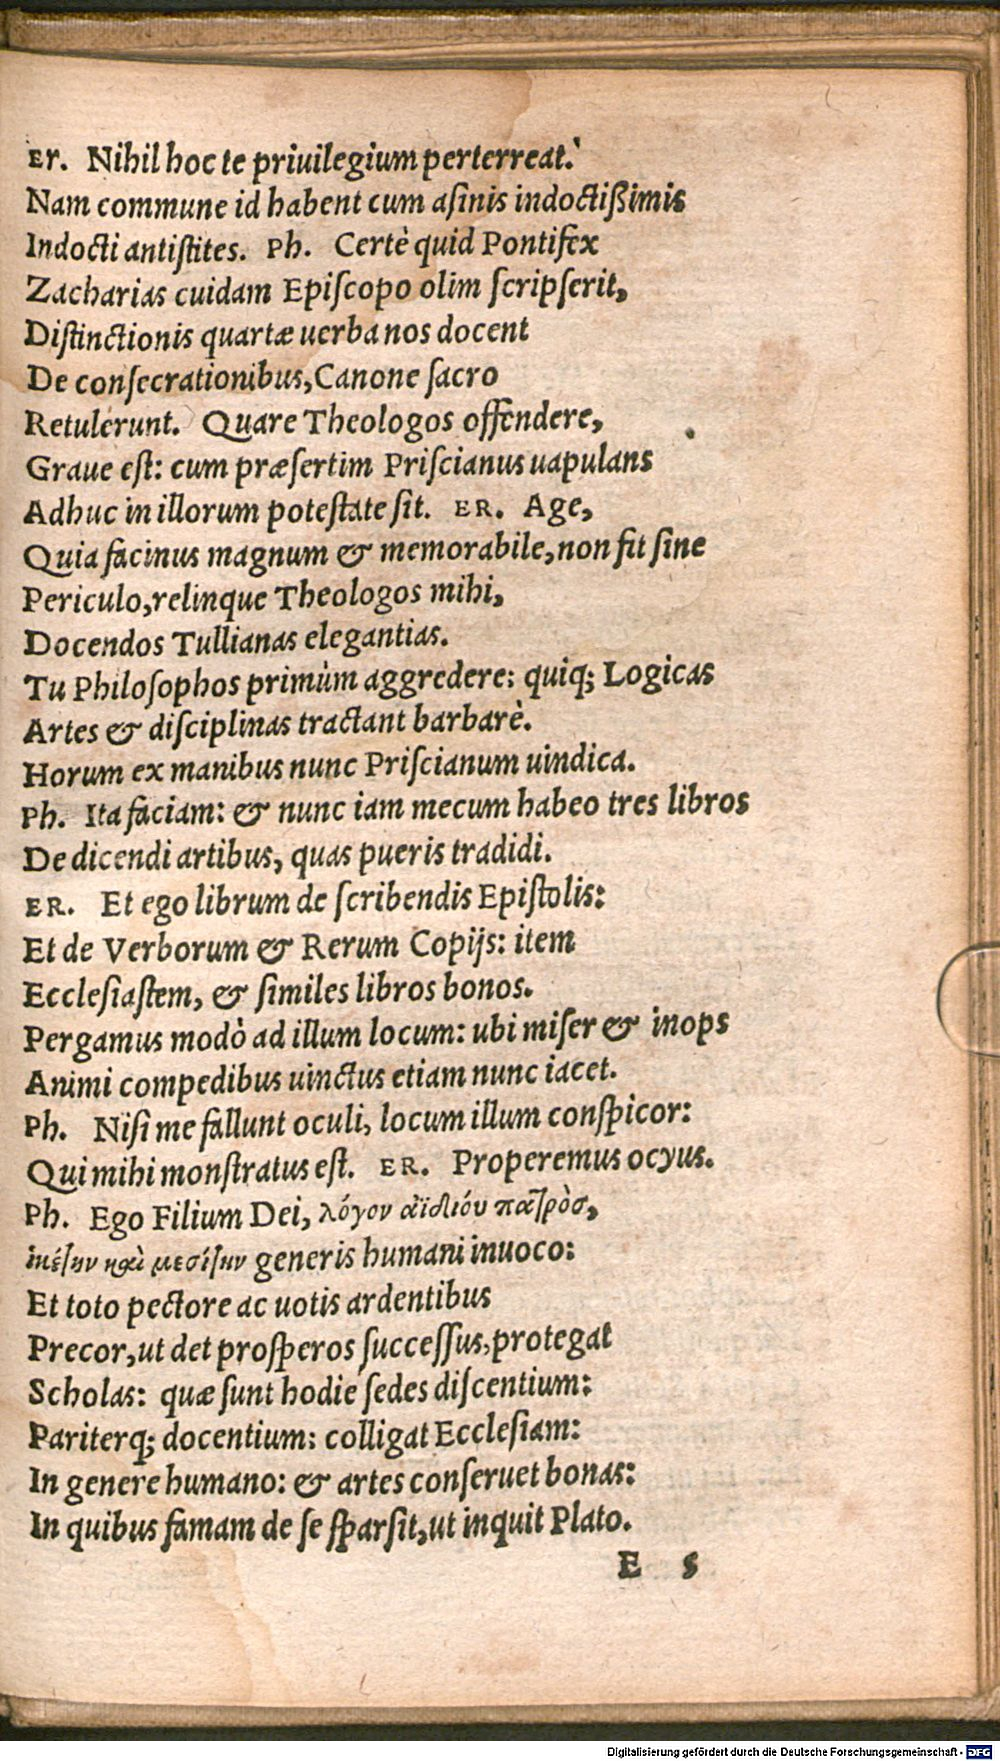 Er. Nihil hoc te priuilegium perterreat.
Nam commune id habent cum asinis indoctißimis
Indocti antistites. Ph. Certè quid Pontifex
Zacharias cuidam Episcopo olim scripserit,
Distinctionis quartæ uerba nos docent
De consecrationibus, Canone sacro
Retulerunt. Quare Theologos offendere,
Graue est: cum præsertim Priscianus uapulans
Adhuc in illorum potestate sit. ER. Age,
Quia facinus magnum & memorabile, non fit sine
Periculo, relinque Theologos mihi,
Docendos Tullianas elegantias.
Tu Philosophos primùm aggredere: quiq; Logicas
Artes & disciplinas tractant barbarè.
Horum ex manibus nunc Priscianum uindica.
Ph. Ita faciam: & nunc iam mecum habeo tres libros
De dicendi artibus, quas pueris tradidi.
ER. Et ego librum de scribendis Epistolis:
Et de Verborum & Rerum Copijs: item
Ecclesiastem, & similes libros bonos.
Pergamus modò ad illum locum: ubi miser & inops
Animi compedibus uinctus etiam nunc iacet.
Ph. Nisi me fallunt oculi, locum illum conspicor:
Qui mihi monstratus est. ER. Properemus ocyus.
Ph. Ego Filium Dei, λόγον ἀϊδιόυ πατρὸσ,
ἱκέτην καὶ μεσίτην generis humani inuoco:
Et toto pectore ac uotis ardentibus
Precor, ut det prosperos successus, protegat
Scholas: quæ sunt hodie sedes discentium:
Pariterq; docentium: colligat Ecclesiam:
In genere humano: & artes conseruet bonas:
In quibus famam de se sparsit, ut inquit Plato.
E s
Digitalisierung gefördert durch die Deutsche Forschungsgemeinschaft - DFG